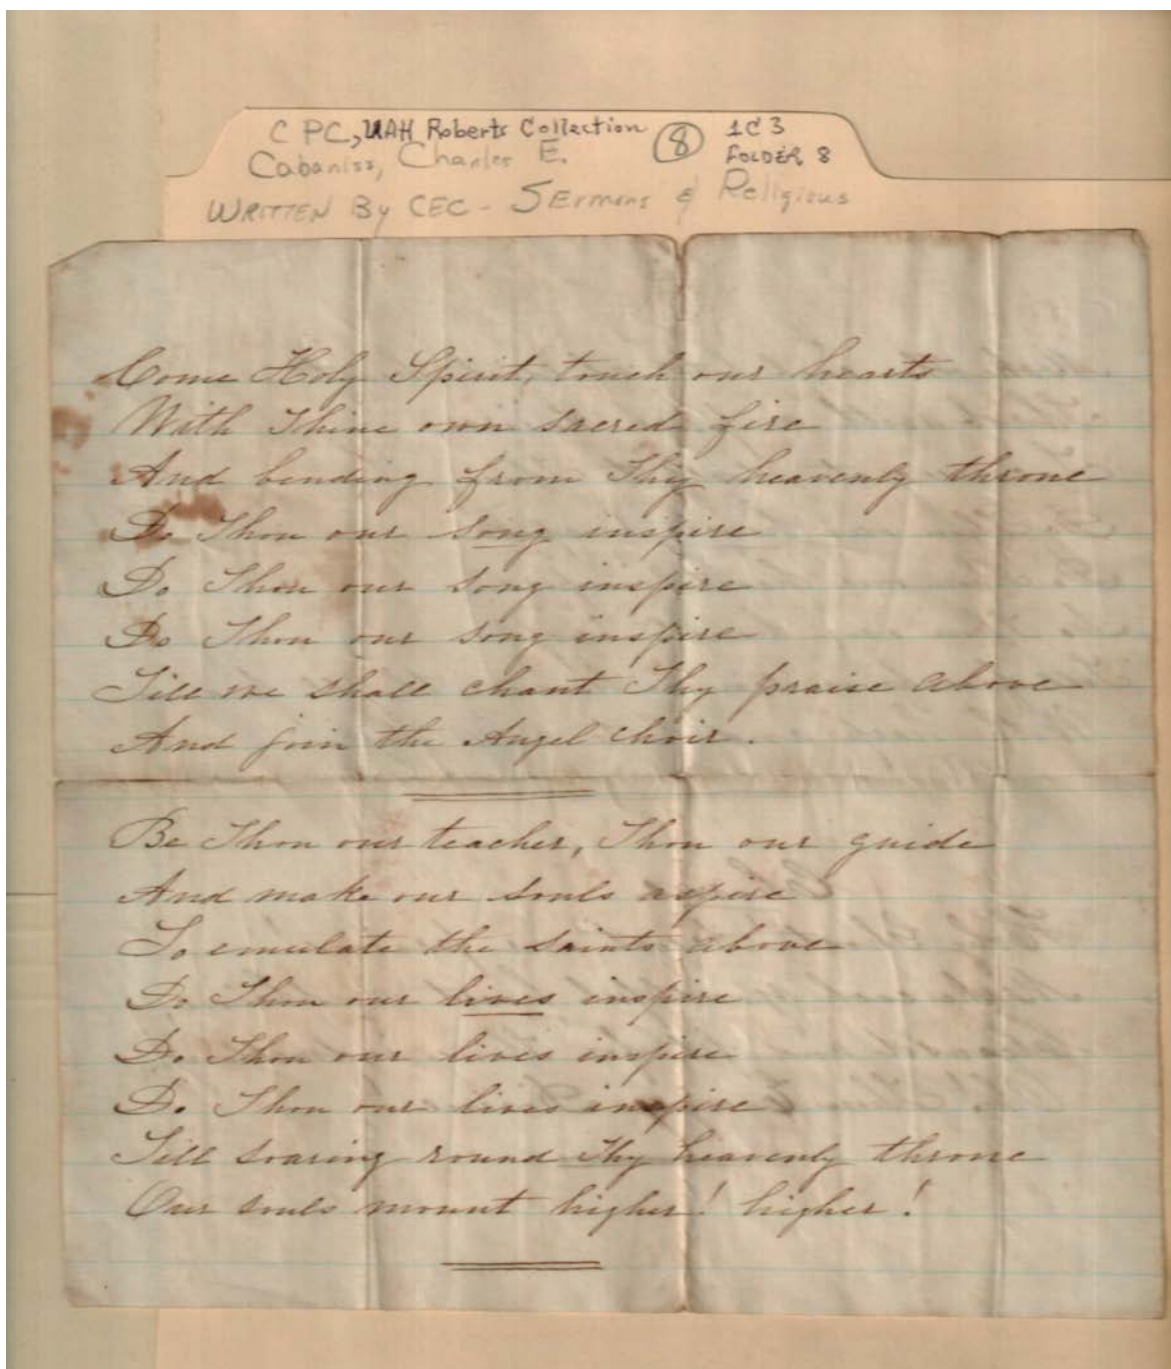 C PC, UAH Roberts Collection ⑧ 1C3
Cabaniss, Charles E. FOLDER 8
WRITTEN By CEC - SErmons & Religious
Come Holy Spirit, touch our hearts
With Thine own sacred fire
And bending from Thy heavenly throne
Do Thou our song inspire
Do Thou our song inspire
Do Thou our song inspire
Till we shall chant Thy praise above
And join the Angel choir.
Be Thou our teacher, Thou our guide
And make our souls aspire
To emulate the saints above
Do Thou our lives inspire
Do Thou our lives inspire
Do Thou our lives inspire
Till soaring round Thy heavenly throne
Our souls mount higher! higher!